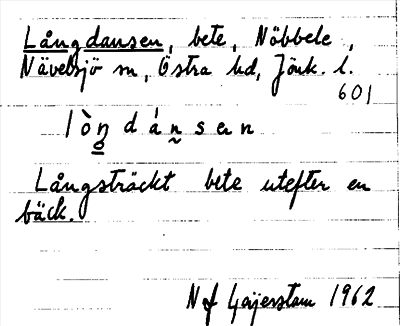 Långdansen, bete, Nöbbele,
Nävelsjö sn, Östra hd, Jönk. l.
601
lòn̥dán̰sen
Långsträckt bete utefter en
bäck.
N af Geijerstam 1962